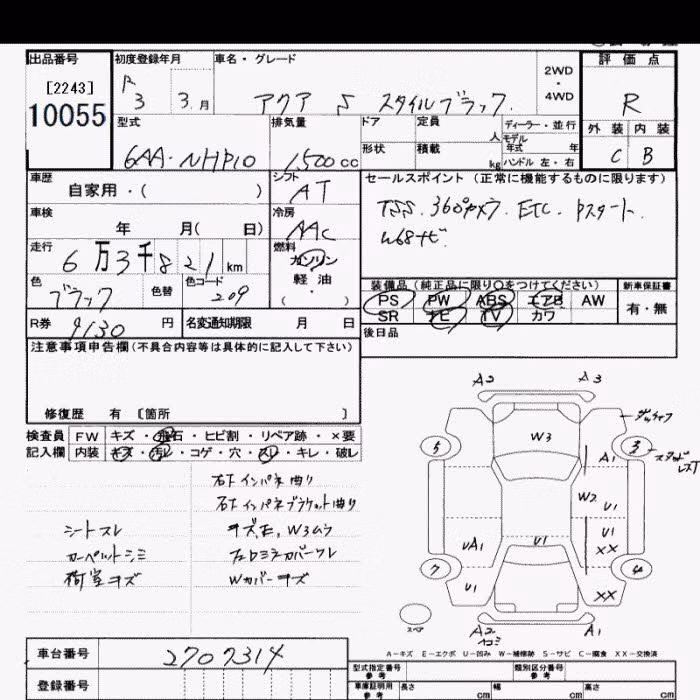 出品番号 初度登録年月 車名・グレード 評価点
[2243]
10055
R 3 3.月 アクア S スタイルブラック. 2WD・4WD R
型式 排気量 ドア 定員 人 ディーラー・並行 外装 内装
6AA・NHP10 1,500cc 形状 積載 kg モデル年式 年 C B
ハンドル 左・右
車歴 シフト セールスポイント (正常に機能するものに限ります)
自家用・( ) AT
TSS. 360°カメラ. ETC. Pスタート.
車検 冷房
年 月( 日) AAC
W68ナビ
走行 燃料
6万3千821km ガソリン
軽油
・( )
装備品(純正品に限り〇をつけてください) 新車保証書
色 色替 色コード
ブラック 209
PS PW ABS エアB AW 有・無
SR ナビ TV カワ
R券 9130円 名変通知期限 月 日
後日品
注意事項申告欄(不具合内容等は具体的に記入して下さい)
修復歴 有 〔箇所 〕
検査員 FW キズ・飛石・ヒビ割・リペア跡・×要
記入欄 内装 キズ・汚レ・コゲ・穴・スレ・キレ・破レ
右下インパネ曲り
右下インパネブラケット曲り
シートスレ キズ,E, W3ムラ
カーペットシミ フロミラカバースレ
荷室キズ Wカバーキズ
A2 A3
W3
5 A1 3
W2 U1
UA1 U1 U1
XX
7 4
U1 XX
スペア
A2 ヘコミ A1
A-キズ E-エクボ U-凹み W-補修跡 S-サビ C-腐食 XX-交換済
車台番号 2707314
登録番号
型式指定番号 参考 類別区分番号 参考
車庫証明用 参考 長さ cm 幅 cm 高さ cm